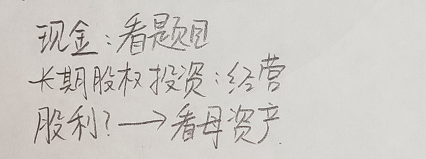 现金:看题目
长期股权投资:经营
股利?→看母资产